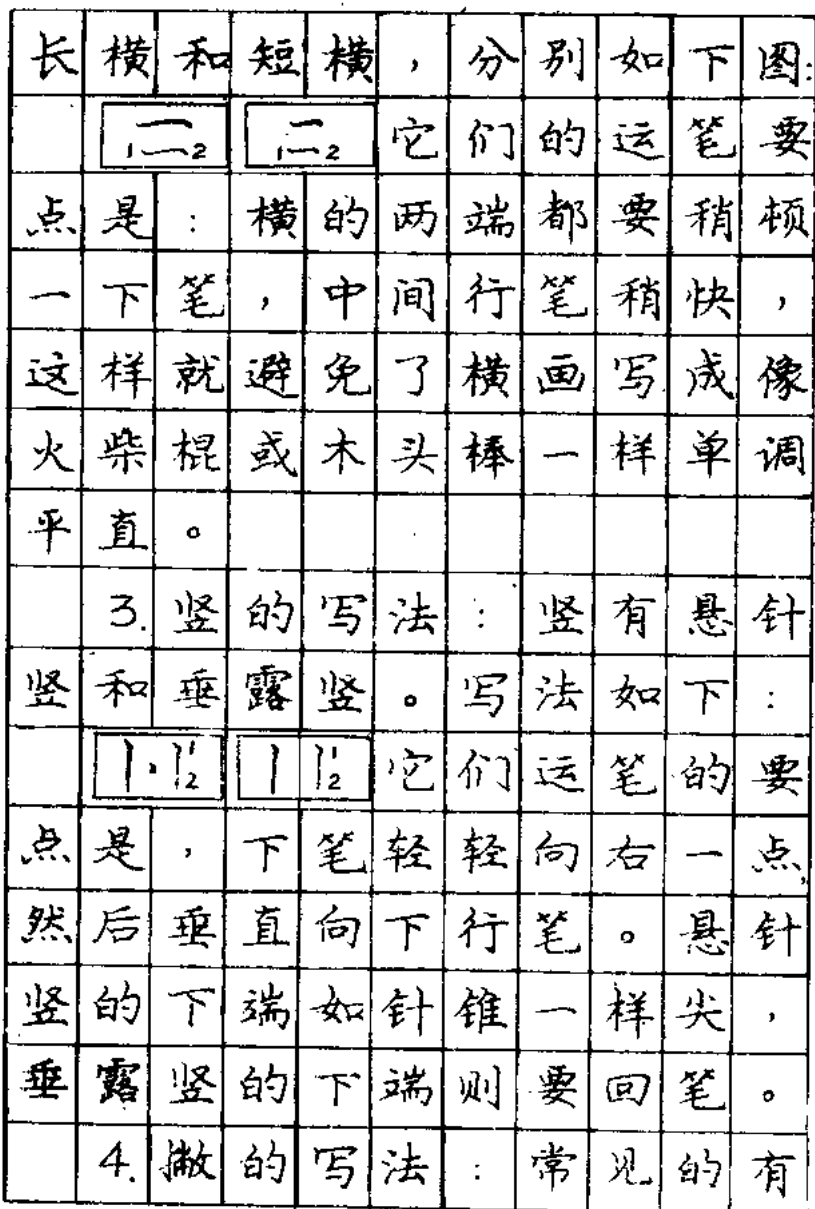 长横和短横，分别如下图:
1 2 1 2 它们的运笔要
点是:横的两端都要稍顿
一下笔，中间行笔稍快，
这样就避免了横画写成像
火柴棍或木头棒一样单调
平直。
3.竖的写法:竖有悬针
竖和垂露竖。写法如下:
1 2 1 2 它们运笔的要
点是，下笔轻轻向右一点，
然后垂直向下行笔。悬针
竖的下端如针锥一样尖，
垂露竖的下端则要回笔。
4.撇的写法:常见的有